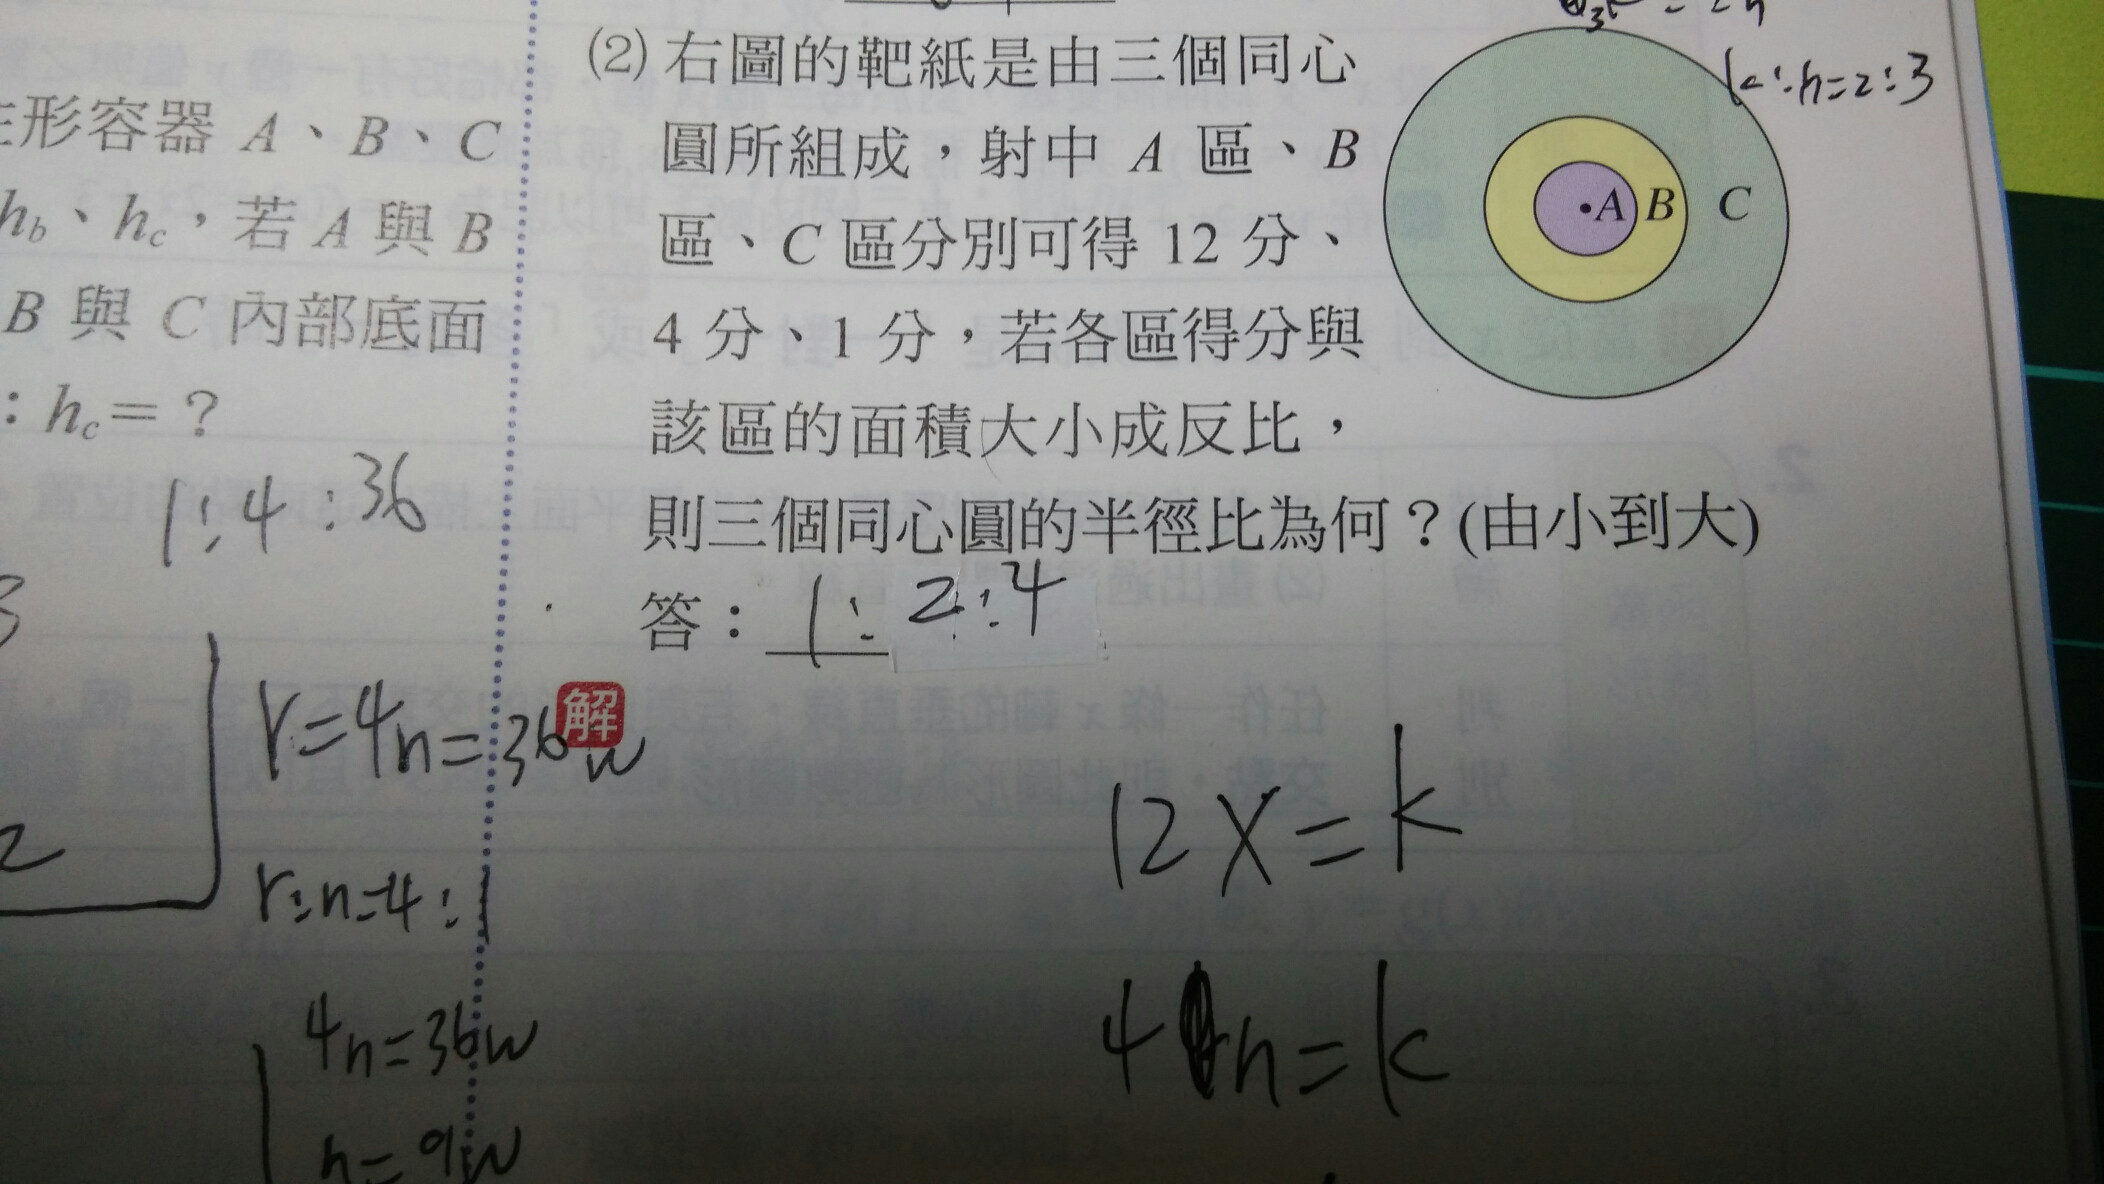 形容器 A、B、C
hb、hc，若 A 與 B
B 與 C 內部底面
：hc＝？
1:4:36
r=4n=36w
r:n=4:1
4n=36w
n=9w
(2) 右圖的靶紙是由三個同心
圓所組成，射中 A 區、B
區、C 區分別可得 12 分、
4 分、1 分，若各區得分與
該區的面積大小成反比，
則三個同心圓的半徑比為何？(由小到大)
答：1:2:4
解
k:n=2:3
A B C
12x=k
4n=k